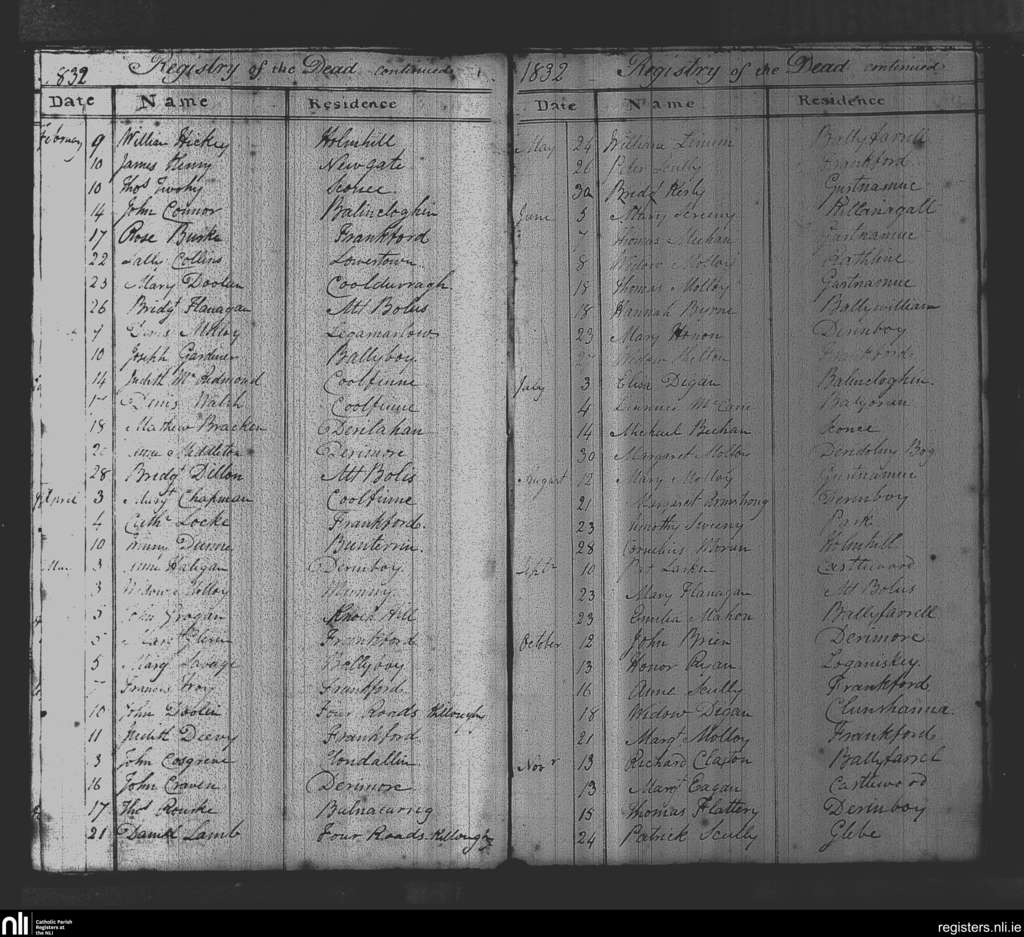 1832 Registry of the Dead continued
Date Name Residence
February 9 William Hickey Holmhill
10 James Henry Newgate
10 Thos Twohy Sconce
14 John Connor Balincloghin
17 Rose Burke Frankford
22 Sally Collins Lowertown
23 Mary Doolen Cooldurragh
26 Bridgt Flanagan Mt Bolus
7 Molloy Legamarlow
10 Joseph Gardiner Ballyboy
14 Judith Mc Redmond Coolfinne
Denis Walsh Coolfinne
18 Mathew Bracken Denlahan
Middleton Derimore
28 Bridgt Dillon Mt Bolis
April 3 Margt Chapman Coolfinne
4 Cathe Locke Frankford
10 Dunne Bunterrin
3 Haligan Derinboy
3 Widow Molloy
5 John Grogan Knock Hill
5 Margt Frankford
5 Margt Savage Ballyboy
Francis Troy Frankford
10 John Doolin Four Roads Killough
11 Judith Deevy Frankford
3 John Cosgrove
16 John Craven Derimore
17 Thos Rourke Balnacarrig
21 Daniel Lamb Four Roads Killough
1832 Registry of the Dead continued
Date Name Residence
May 24 William Ballyfarrell
26 Peter Scully Frankford
30 Bridgt Kirby Gurtnamue
June 5 Mary Killanagall
7 Thomas Meehan Gurtnamue
8 Widow Molloy
18 Thomas Molloy Gurtnamue
18 Hannah Byrne Ballywilliam
23 Mary Honon Derinboy
Widow Frankford
July 3 Eliza Degan Balincloghin
4
14 Michael Beehan Sconce
30 Margaret Molloy Bog
August 12 Mary Molloy Gurtnamue
21 Margaret Armstrong Derinboy
23 Timothy Sweeny Park
28 Cornelius Moran Holmhill
Septr 10 Pat Larkin Castlewood
23 Mary Flanagan Mt Bolus
23 Emelia Mahon Ballyfarrell
October 12 John Brien Derimore
13 Honor Ryan Loganiskey
16 Anne Scully Frankford
18 Widow Degan Clunshanna
21 Margt Molloy Frankford
Novr 13 Richard Claxton Ballyfarrel
13 Margt Eagan Castlewood
15 Thomas Flattery Derinboy
24 Patrick Scully Glebe
nli Catholic Parish Registers at the NLI
registers.nli.ie